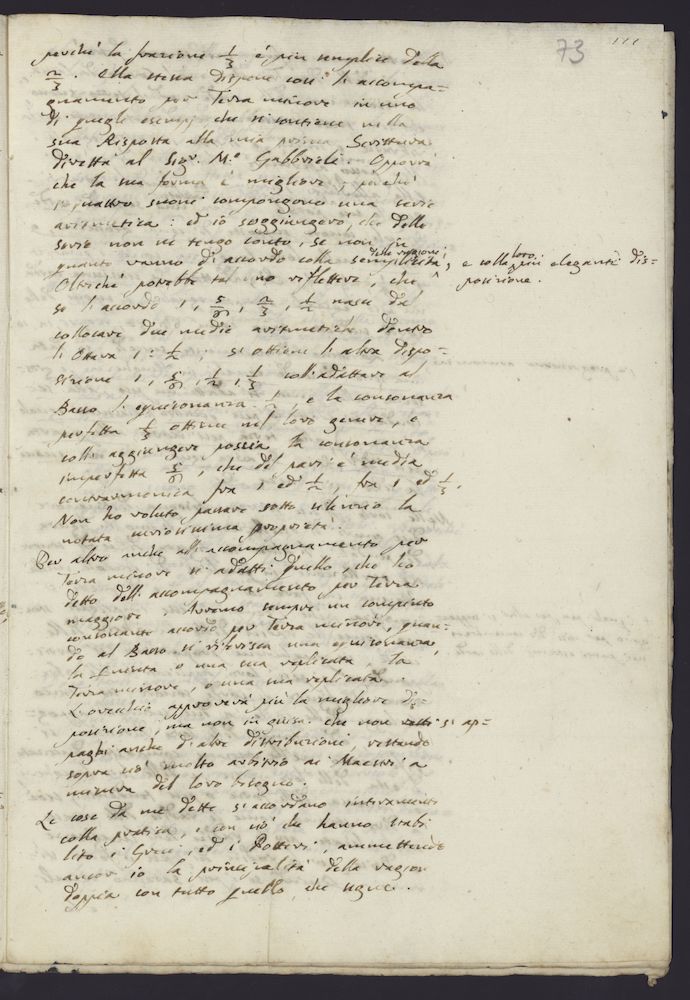 73
perché la frazione 1/3 è più semplice della
2/3. Ella stessa dispone così l'accompa=
gnamento per Terza minore in uno
di quegli esempj, che si contiene nella
sua Risposta alla mia prima Scrittura
diretta al Sigr. M.o Gabbrieli. Opporrà
che la sua forma è migliore, perché
i quattro suoni compongono una serie
aritmetica: ed io soggiungerò, che delle
serie non ne tengo conto, se non in
quanto vanno di accordo colla semplicità delle ragioni, e colla loro più elegante dis=
posizione.
Oltreché potrebbe tal uno riflettere, che
se l'accordo 1, 5/6, 2/3, 1/2 nasce dal
collocare due medie aritmetiche dentro
l'Ottava 1 : 1/2; si ottiene l'altra dispo=
sizione 1, 5/6, 1/2, 1/3 coll'adattare al
Basso l'equisonanza 1/2, e la consonanza
perfetta 1/3 ottime nel loro genere, e
coll'aggiungere poscia la consonanza
imperfetta 5/6, che del pari è media
contrarmonica fra 1 ed 1/2, fra 1 ed 1/3.
Non ho voluto passare sotto silenzio la
notata curiosissima proprietà.
Per altro anche all'accompagnamento per
Terza minore si adatti quello, che ho
detto dell'accompagnamento per Terza
maggiore. Avremo sempre un compiuto
consonante accordo per Terza minore, quan=
do al Basso si riferisca una equisonanza,
la Quinta o una sua replicata, la
Terza minore, o una sua replicata.
L'orecchio approverà più la migliore dis=
posizione, ma non in guisa che non si ap=
paghi anche d'altre distribuzioni, restando
sopra ciò molto arbitrio ai Maestri a
misura del loro bisogno.
Le cose da me dette si accordano interamente
colla pratica, e con ciò che hanno stabi
lito i Greci, ed i Posteri, ammettendo
ancor io la principalità della ragion
doppia con tutto quello, che segue.